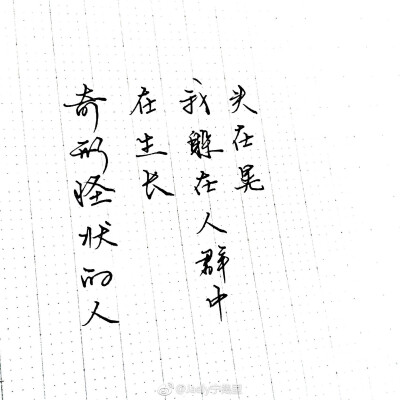 头在晃
我躲在人群中
在生长
奇形怪状的人